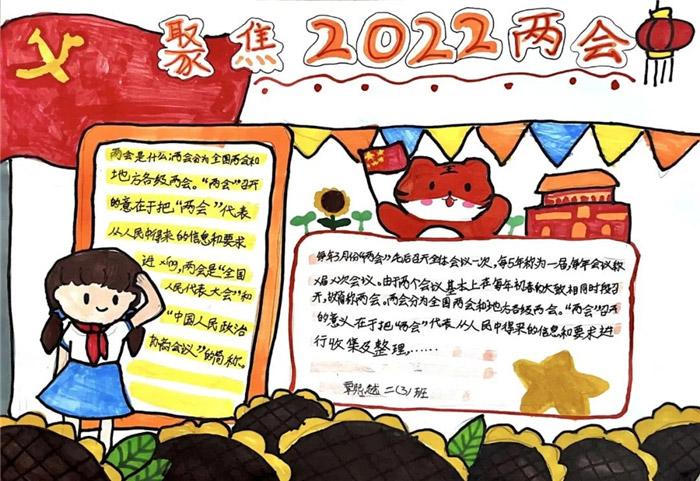 聚焦2022两会
两会是什么:两会分为全国两会和
地方各级两会。“两会”召开
的意在于把“两会”代表
从人民中得来的信息和要求
进
两会是“全国
人民代表大会”和
“中国人民政治
协商会议”的简称。
每年3月份“两会”先后召开全体会议一次,每5年称为一届,每年会议称
X届X次会议。由于两个会议基本上在每年初春和大致相同时段召
开,故简称两会。两会分为全国两会和地方各级两会。“两会”召开
的意义在于把“两会”代表从人民中得来的信息和要求进
行收集及整理,……
二(3)班